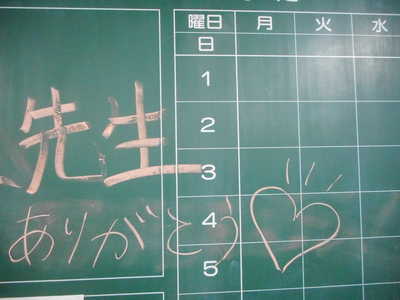 曜日 月 火 水
日
1
2
先生
3
ありがとう
4
5